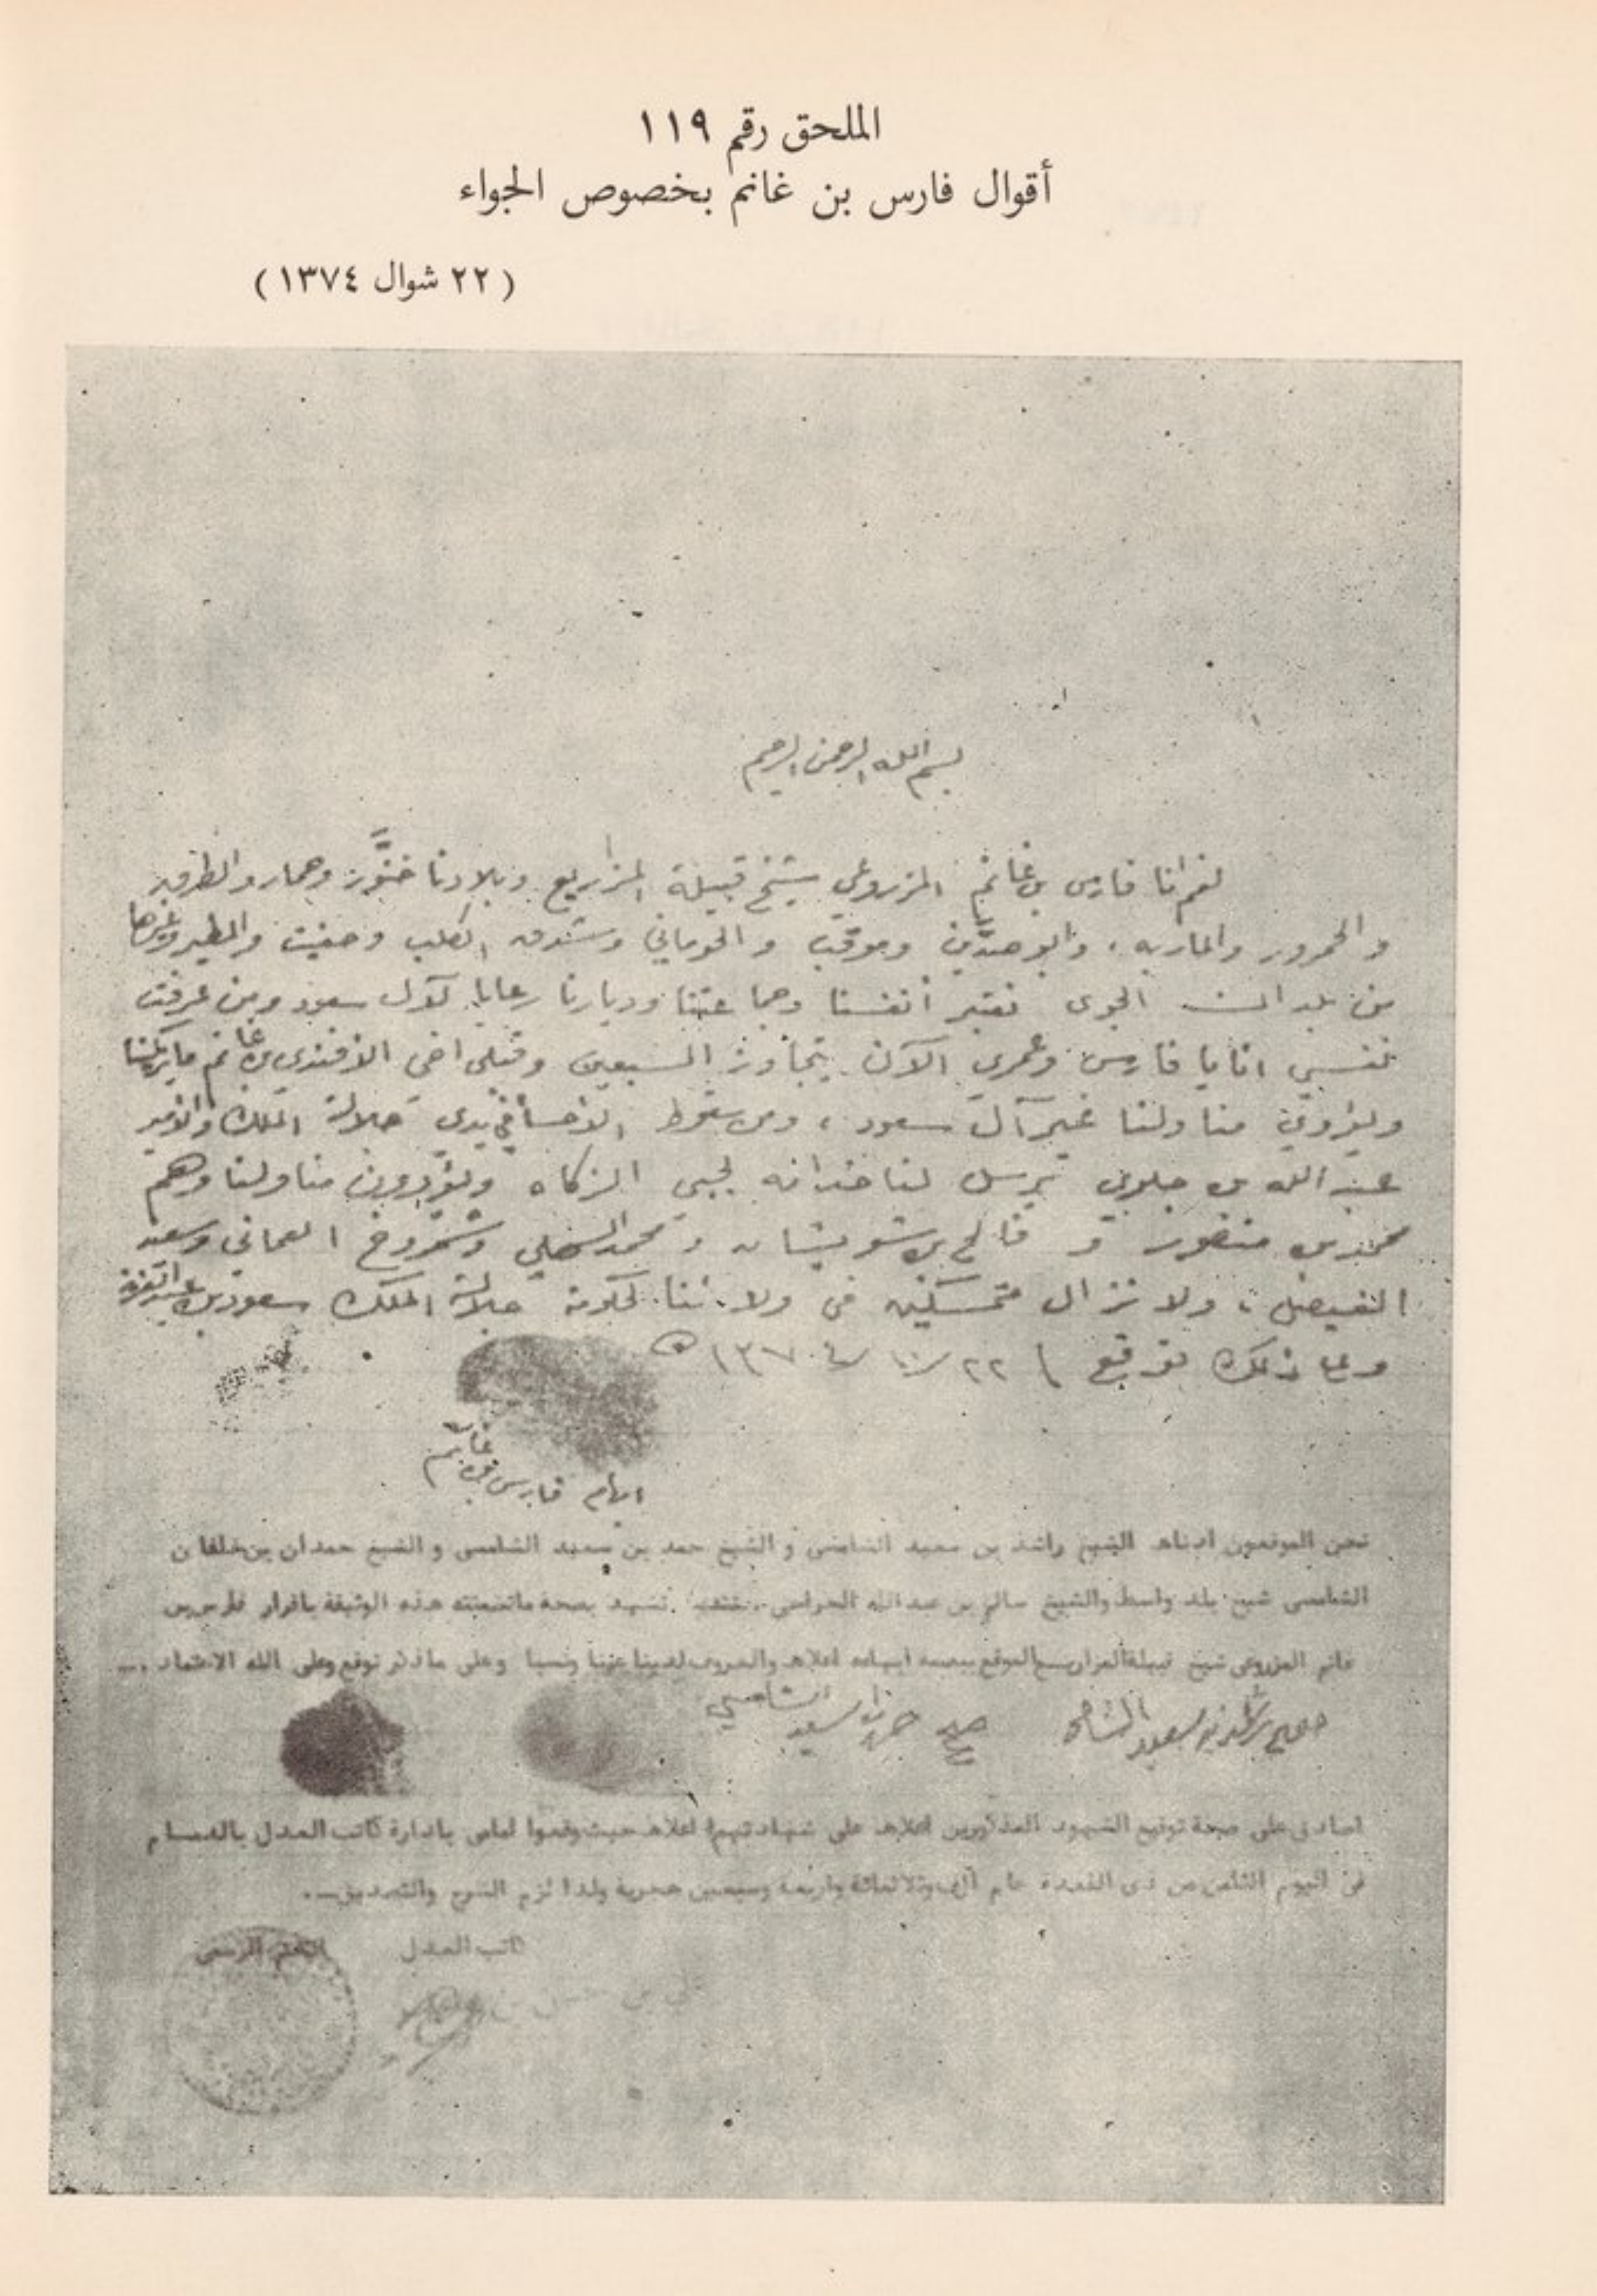 الملحق رقم ١١٩
أقوال فارس بن غانم بخصوص الجواء
(٢٢ شوال ١٣٧٤)
بسم الله الرحمن الرحيم
فارس بن غانم المزروعي شيخ قبيلة المزاريع وبلادنا خنّور وحمار والطرق
والحمرور والماريه، وموقب والحوماني وشدق الكلب وحفيف والمطير وغيرها
من بلدان الجوى نعتبر أنفسنا وجماعتنا وديارنا رعايا لآل سعود ومن عرفت
نفسي انايا فارس وعمري الآن يتجاوز السبعين وقبلي اخي الافندي بن غانم ما يركبنا
منا ولنا غير آل سعود، ومن سقوط الأحسا في يدي جلالة الملك والأمير
عبد الله بن جلوي يرسل لنا لجبي الزكاه ويؤدون منا ولنا وهم
محمد بن منصور و فالح بن شويشان ومحمد السهلي وشمروخ العماني وسعيد
الفيصل، ولا نزال متمسكين في ولائنا لحكومة جلالة الملك سعود بن عبد العزيز
وعلى ذلك نوقع ٢٢/١٠/١٣٧٤ هـ
ابهام فارس بن غانم
نحن الموقعون ادناه الشيخ راشد بن سعيد الشامسي و الشيخ حمد بن سعيد الشامسي و الشيخ حمدان بن خلفان
الشامسي شيخ بلد واسط والشيخ سالم بن عبدالله نشهد بصحة ماتضمنته هذه الوثيقة باقرار فارس بن
غانم المزروعي شيخ قبيلة المزاريع الموقع ببصمة ابهامه اعلاه والمعروف لدينا عينا ونسبا وعلى ماذكر نوقع وعلى الله الاعتماد ...
راشد بن سعيد الشامسي
صحيح حمد بن سعيد الشامسي
اصادق على صحة توقيع الشهود المذكورين اعلاه على شهادتهم اعلاه حيث وقعوا امامي بادارة كاتب العدل بالدمام
في اليوم الثامن من ذي القعدة عام ألف وثلاثمائة واربعة وسبعين هجرية ولذا لزم الشرح والتصديق...
كاتب العدل الختم الرسمي